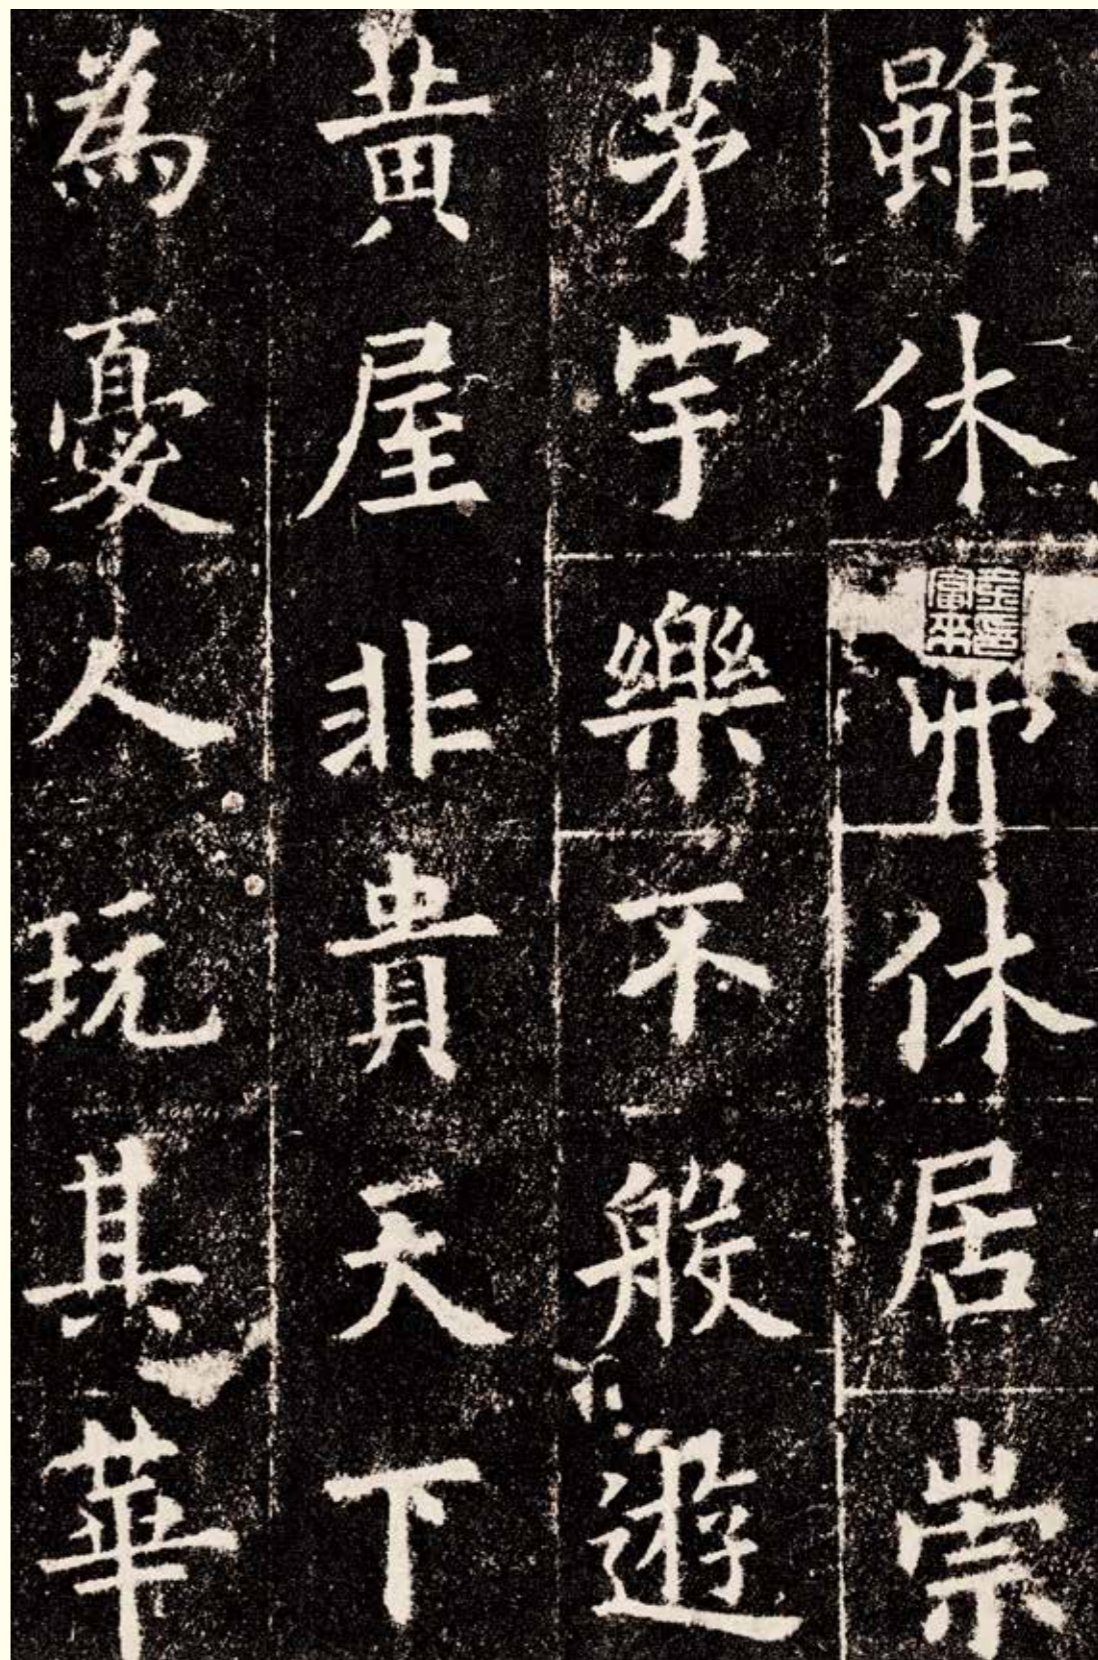 雖休弗休居崇
茅宇樂不般遊
黄屋非貴天下
為憂人玩其華